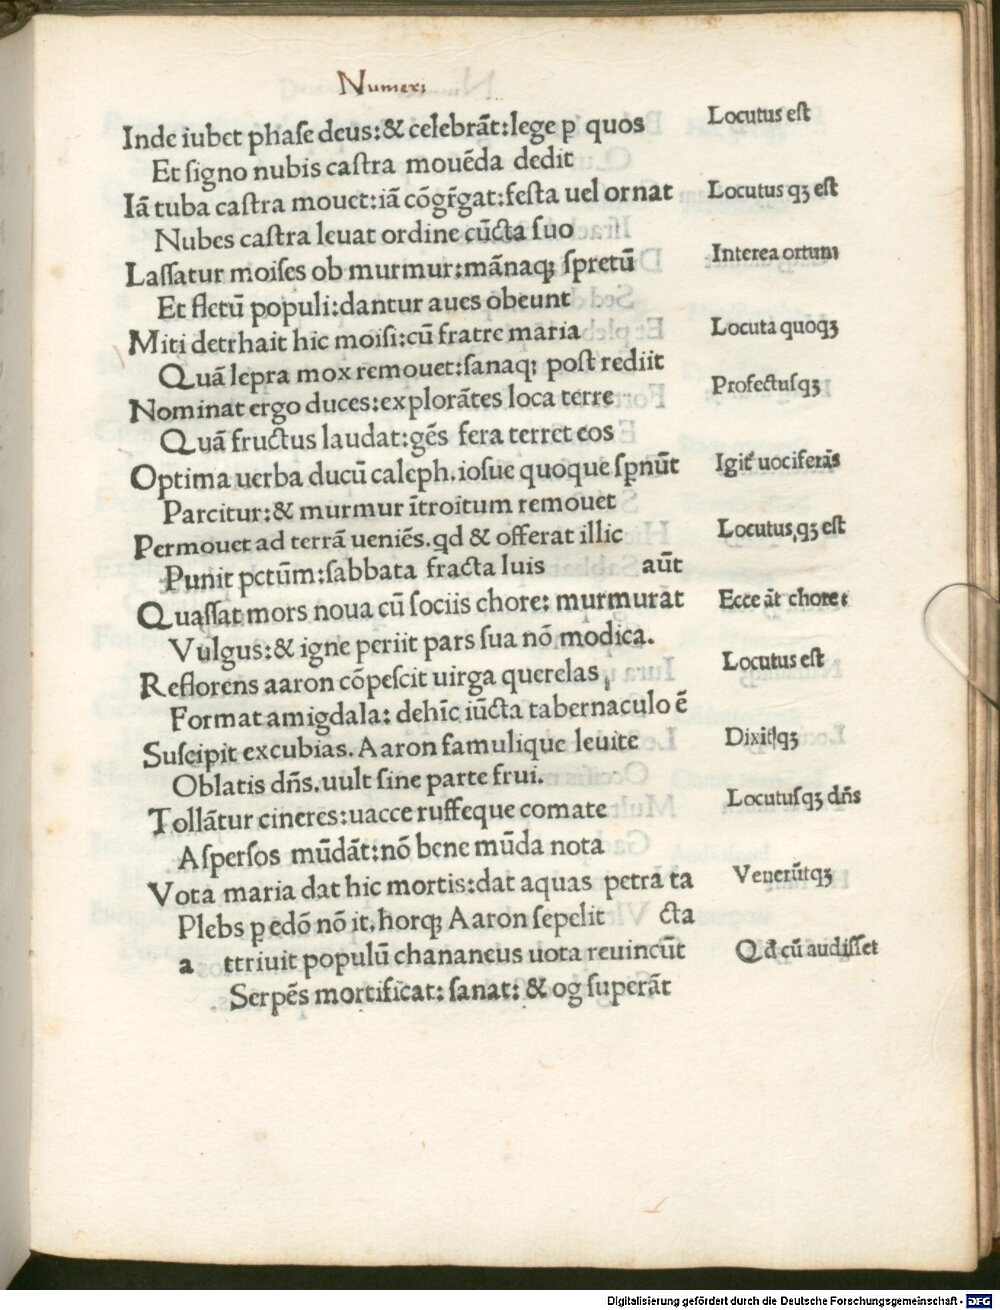 Numeri
Inde iubet phase deus:& celebrāt:lege ꝑ quos
Locutus est
Et signo nubis castra mouēda dedit
Iā tuba castra mouet:iā cōgr̄gat:festa uel ornat
Locutus qꝫ est
Nubes castra leuat ordine cūcta suo
Lassatur moises ob murmur:mānaqꝫ spretū
Interea ortum
Et fletū populi:dantur aues obeunt
Miti detrhait hic moisi:cū fratre maria
Locuta quoqꝫ
Quā lepra mox remouet:sanaqꝫ post rediit
Nominat ergo duces:explorātes loca terre
Profectusqꝫ
Quā fructus laudat:gēs fera terret eos
Optima uerba ducū caleph.iosue quoque spnūt
Igit᷑ uociferās
Parcitur:& murmur ītroitum remouet
Permouet ad terrā ueniēs.qd & offerat illic
Locutus qꝫ est
Punit pctūm:sabbata fracta luis aūt
Quassat mors noua cū sociis chore: murmurāt
Ecce āt chore:
Vulgus:& igne periit pars sua nō modica.
Reflorens aaron cōpescit uirga querelas
Locutus est
Format amigdala: dehīc iūcta tabernaculo ē
Suscipit excubias. Aaron famulique leuite
Dixitqꝫ
Oblatis dñs.uult sine parte frui.
Tollātur cineres:uacce ruffeque comate
Locutusqꝫ dñs
Aspersos mūdāt:nō bene mūda nota
Vota maria dat hic mortis:dat aquas petra ta
Venerūtqꝫ
Plebs ꝑ edō nō it.horqꝫ Aaron sepelit cta
a ttriuit populū chananeus uota reuincūt
Qd cū audisset
Serpēs mortificat: sanat: & og superāt
Digitalisierung gefördert durch die Deutsche Forschungsgemeinschaft - DFG